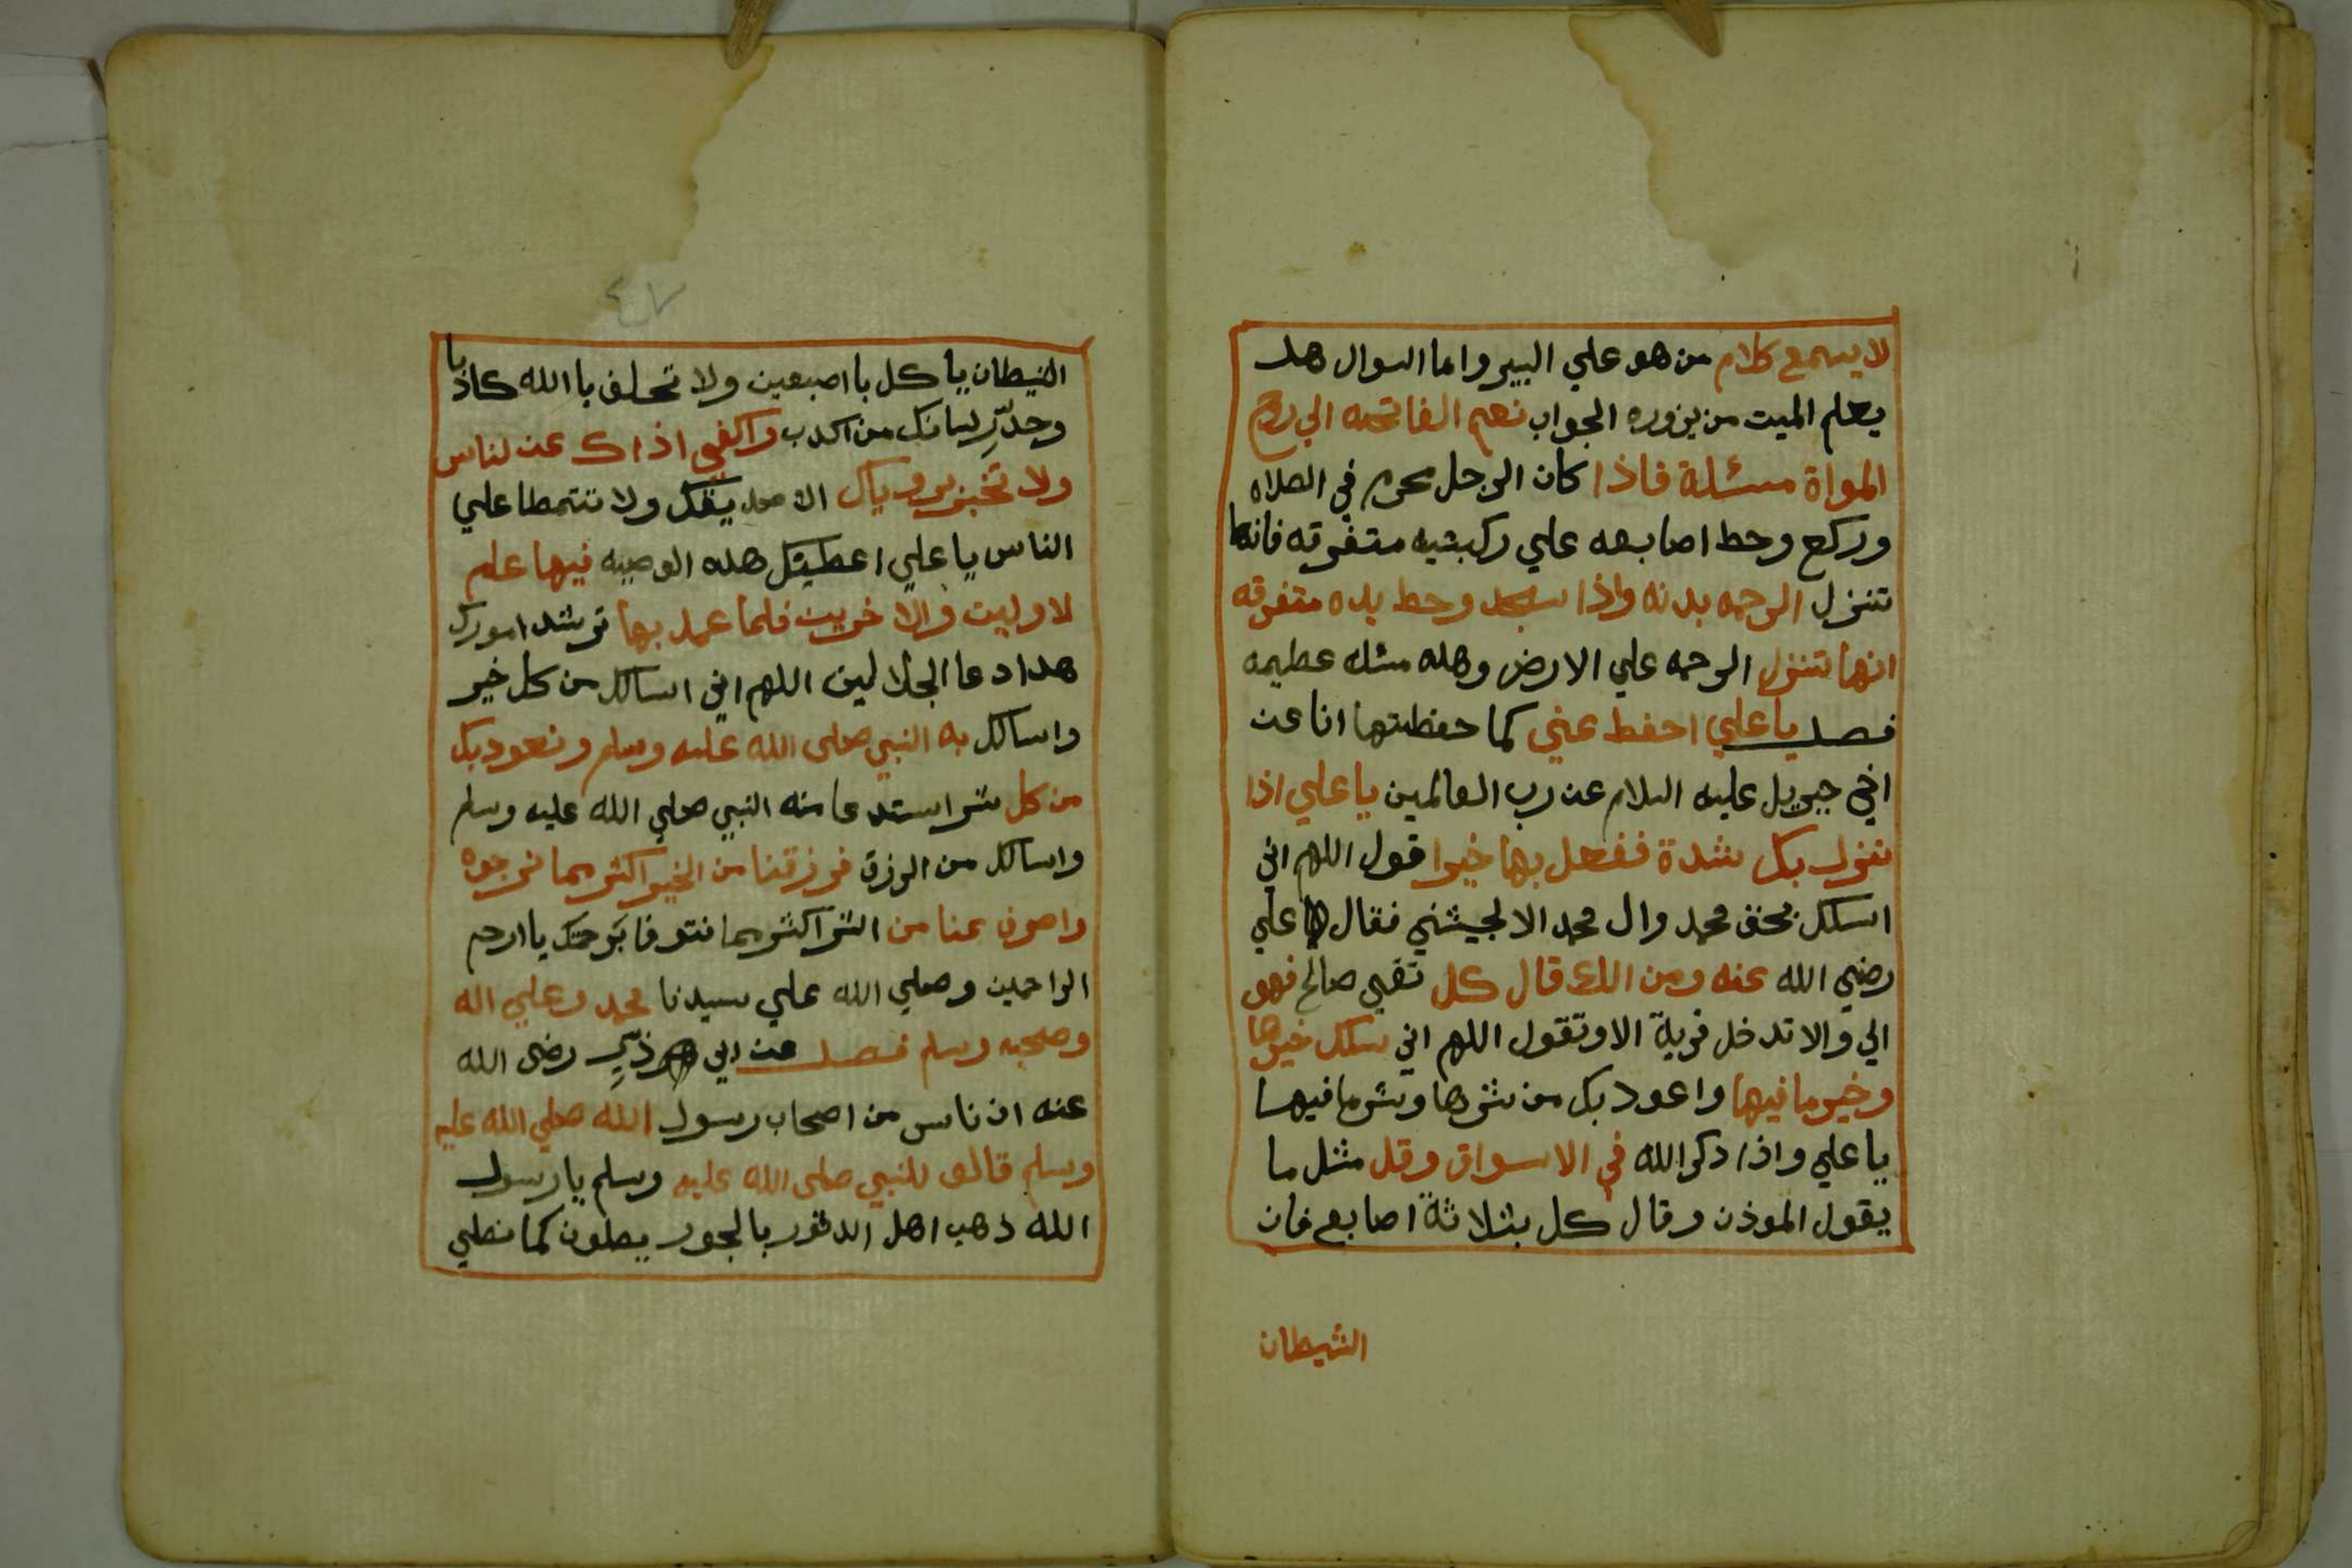 لا يسمع كلام من هو علي البير واما السوال هل
يعلم الميت من يزوره الجواب نعم الفاتحه الي روح
المواة مسئلة فاذا كان الرجل محرم في الصلاه
وركع وحط اصابعه علي ركبتيه متفرقه فانها
تنزل الرحمه بدنه واذا سجد وحط يده متفرقه
انها تنزل الرحمه علي الارض وهذه مسئله عظيمه
فصل يا علي احفظ عني كما حفظتها انا عن
اخي جبريل عليه السلام عن رب العالمين يا علي اذا
نزل بك شدة ففعل بها خيرا قول اللهم اني
اسلك بحق محمد وال محمد الا نجيتني فقال علي
رضي الله عنه ومن قال كل تقي صالح فهو
الي والا تدخل قرية الا وتقول اللهم اني سلك خيرها
وخير ما فيها واعود بك من شرها وشر ما فيها
يا علي واذا دكر الله في الاسواق وقل مثل ما
يقول الموذن وقال كل بثلاثة اصابع فان
الشيطان
٤٧
الشيطان ياكل با اصبعين ولا تحلف با الله كاذبا
وحذر لسانك من اكدب واكفي اذاك عن لناس
ولا تخبز يقك ولا تتمطا علي
الناس يا علي اعطيتك هذه الوصيه فيها علم
لاوليت والا خريت فلما عمد بها ترشد امورك
هدا دعا الجلالين اللهم اني اسالك من كل خير
واسالك به النبي صلى الله عليه وسلم ونعود بك
من كل شر استدعا منه النبي صلي الله عليه وسلم
واسالك من الرزق فرزقنا من الخير اكثر مما نرجوه
واصرف عنا من الشر اكثر مما نتوقا برحمتك يا ارحم
الراحمين وصلي الله علي سيدنا محمد وعلي اله
وصحبه وسلم فصل عن ابي ذر رضى الله
عنه ان ناس من اصحاب رسول الله صلي الله عليه
وسلم قالو للنبي صلى الله عليه وسلم يا رسول
الله ذهب اهل الدثور بالجور يصلون كما نصلي